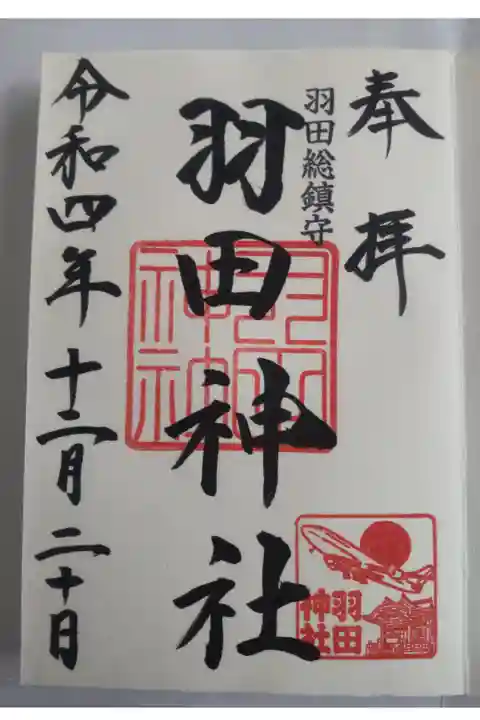 奉拝
羽田総鎮守
羽田神社
羽田神社
羽田
神社
令和四年十二月二十日